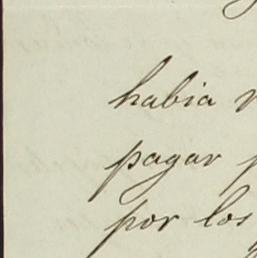 habia
pagar
por los